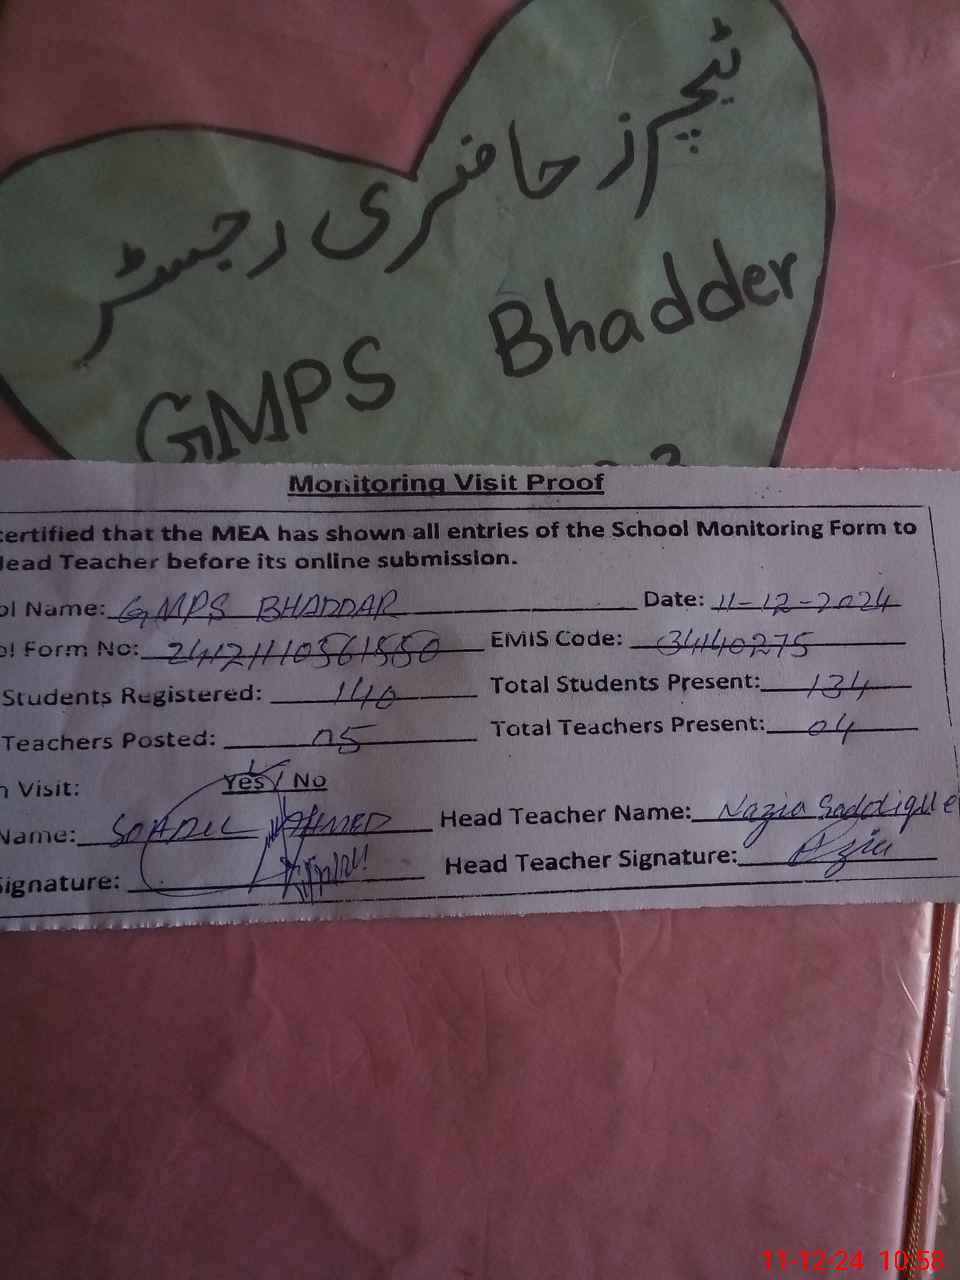 ٹیچرز حاضری رجسٹر
GMPS Bhadder
Monitoring Visit Proof
certified that the MEA has shown all entries of the School Monitoring Form to
Head Teacher before its online submission.
ol Name: GMPS BHADDAR Date: 11-12-2024
ol Form No: EMIS Code: 34140275
Students Registered: 140 Total Students Present: 134
Teachers Posted: 05 Total Teachers Present: 04
n Visit: Yes / No
Name: AHMED Head Teacher Name: Nazia Saddique
Signature: Head Teacher Signature:
11-12-24 10:58